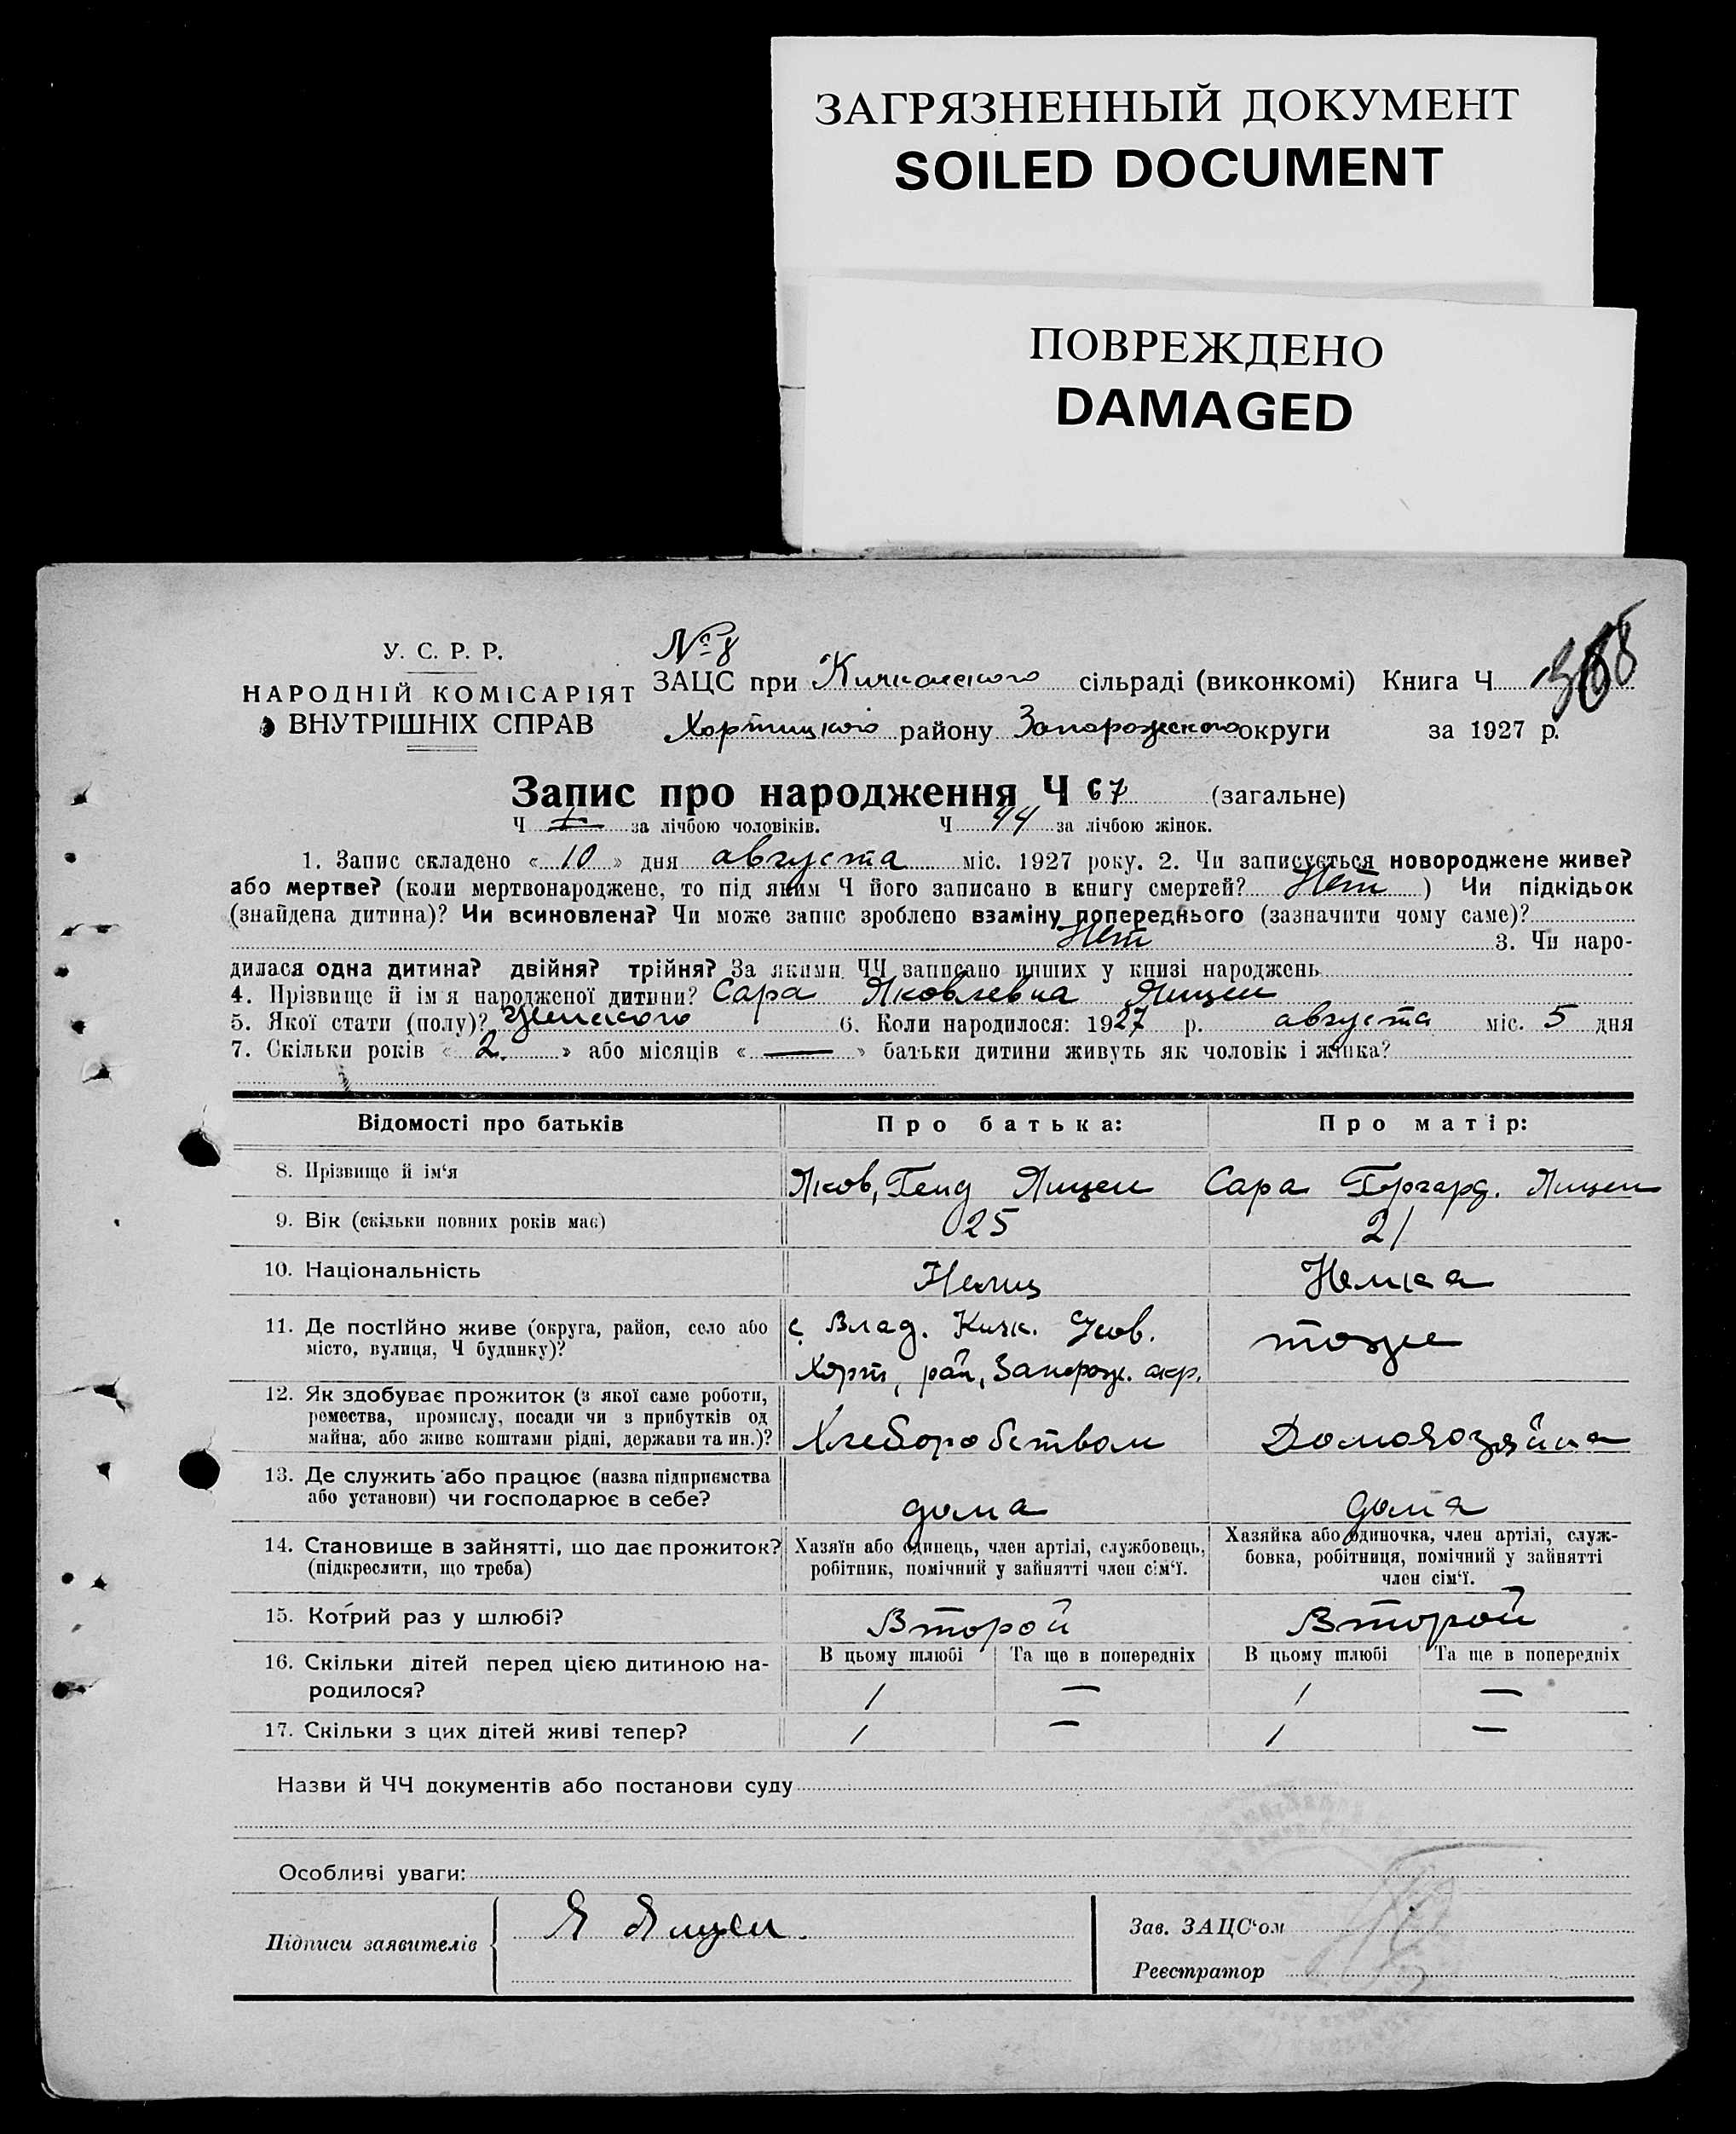 ЗАГРЯЗНЕННЫЙ ДОКУМЕНТ
SOILED DOCUMENT
ПОВРЕЖДЕНО
DAMAGED
У. С. Р. Р.
НАРОДНІЙ КОМІСАРІЯТ
ВНУТРІШНІХ СПРАВ
№ 8
ЗАЦС при Кичкасского сільраді (виконкомі) Книга Ч.
Хортицкого району Запорожского округи за 1927 р.
Запис про народження Ч 67 (загальне)
Ч за лічбою чоловіків. Ч 44 за лічбою жінок.
1. Запис складено « 10 » дня августа міс. 1927 року. 2. Чи записується новороджене живе?
або мертве? (коли мертвонароджене, то під яким Ч його записано в книгу смертей? Нет ) Чи підкідьок
(знайдена дитина)? Чи всиновлена? Чи може запис зроблено взаміну попереднього (зазначити чому саме)?
Нет 3. Чи наро-
дилася одна дитина? двійня? трійня? За якими ЧЧ записано инших у книзі народжень
4. Прізвище й ім'я народженої дитини? Сара Яковлевна Янцен
5. Якої стати (полу)? Женского 6. Коли народилося: 1927 р. августа міс. 5 дня
7. Скільки років « 2. » або місяців « — » батьки дитини живуть як чоловік і жінка?
Відомості про батьків Про батька: Про матір:
8. Прізвище й ім'я Яков, Генд Янцен Сара Гергард. Янцен
9. Вік (скільки повних років має) 25 21
10. Національність Немец Немка
11. Де постійно живе (округа, район, село або
місто, вулиця, Ч будинку)?
с Влад. Кичк.
Хорт, рай, Запорож. окр.
тоже
12. Як здобуває прожиток (з якої саме роботи,
ремества, промислу, посади чи з прибутків од
майна, або живе коштами рідні, держави та ин.)?
Хлеборобством Домохозяйка
13. Де служить або працює (назва підприємства
або установи) чи господарює в себе?
дома дома
14. Становище в зайнятті, що дає прожиток?
(підкреслити, що треба)
Хазяїн або одинець, член артілі, службовець,
робітник, помічний у зайнятті член сім'ї.
Хазяйка або одиночка, член артілі, служ-
бовка, робітниця, помічний у зайнятті
член сім'ї.
15. Котрий раз у шлюбі? Второй Второй
16. Скільки дітей перед цією дитиною на-
родилося?
В цьому шлюбі Та ще в попередніх В цьому шлюбі Та ще в попередніх
1 — 1 —
17. Скільки з цих дітей живі тепер? 1 — 1 —
Назви й ЧЧ документів або постанови суду
Особливі уваги:
Підписи заявителів Я Янцен.
Зав. ЗАЦС'ом
Реєстратор